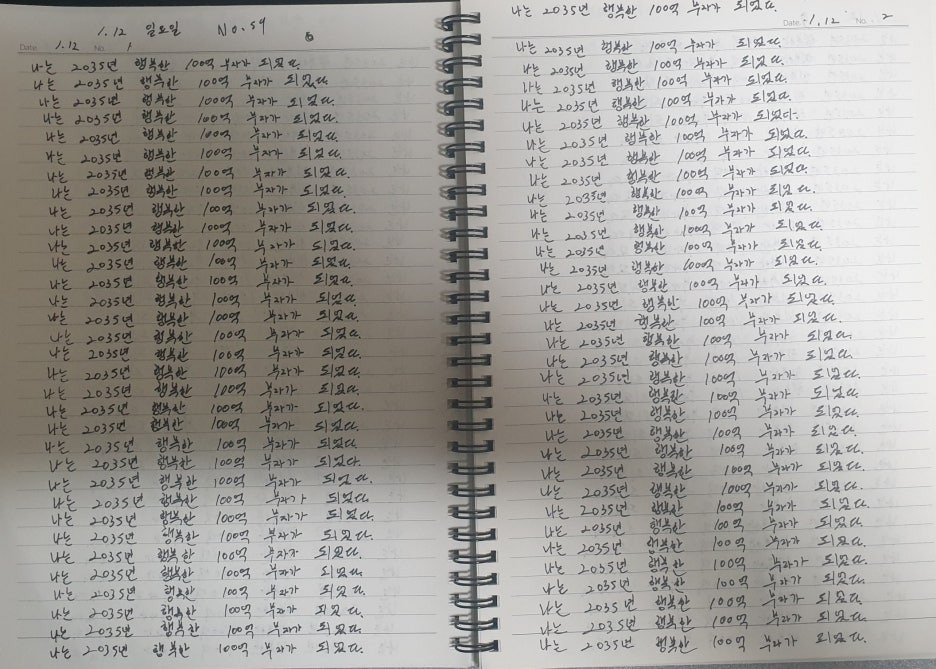 1.12 일요일 No.59
Date. 1.12 No. 1
나는 2035년 행복한 100억 부자가 되었다.
나는 2035년 행복한 100억 부자가 되었다.
나는 2035년 행복한 100억 부자가 되었다.
나는 2035년 행복한 100억 부자가 되었다.
나는 2035년 행복한 100억 부자가 되었다.
나는 2035년 행복한 100억 부자가 되었다.
나는 2035년 행복한 100억 부자가 되었다.
나는 2035년 행복한 100억 부자가 되었다.
나는 2035년 행복한 100억 부자가 되었다.
나는 2035년 행복한 100억 부자가 되었다.
나는 2035년 행복한 100억 부자가 되었다.
나는 2035년 행복한 100억 부자가 되었다.
나는 2035년 행복한 100억 부자가 되었다.
나는 2035년 행복한 100억 부자가 되었다.
나는 2035년 행복한 100억 부자가 되었다.
나는 2035년 행복한 100억 부자가 되었다.
나는 2035년 행복한 100억 부자가 되었다.
나는 2035년 행복한 100억 부자가 되었다.
나는 2035년 행복한 100억 부자가 되었다.
나는 2035년 행복한 100억 부자가 되었다.
나는 2035년 행복한 100억 부자가 되었다.
나는 2035년 행복한 100억 부자가 되었다.
나는 2035년 행복한 100억 부자가 되었다.
나는 2035년 행복한 100억 부자가 되었다.
나는 2035년 행복한 100억 부자가 되었다.
나는 2035년 행복한 100억 부자가 되었다.
나는 2035년 행복한 100억 부자가 되었다.
나는 2035년 행복한 100억 부자가 되었다.
나는 2035년 행복한 100억 부자가 되었다.
나는 2035년 행복한 100억 부자가 되었다.
나는 2035년 행복한 100억 부자가 되었다.
나는 2035년 행복한 100억 부자가 되었다.
나는 2035년 행복한 100억 부자가 되었다.
나는 2035년 행복한 100억 부자가 되었다.
Date. 1.12 No. 2
나는 2035년 행복한 100억 부자가 되었다.
나는 2035년 행복한 100억 부자가 되었다.
나는 2035년 행복한 100억 부자가 되었다.
나는 2035년 행복한 100억 부자가 되었다.
나는 2035년 행복한 100억 부자가 되었다.
나는 2035년 행복한 100억 부자가 되었다.
나는 2035년 행복한 100억 부자가 되었다.
나는 2035년 행복한 100억 부자가 되었다.
나는 2035년 행복한 100억 부자가 되었다.
나는 2035년 행복한 100억 부자가 되었다.
나는 2035년 행복한 100억 부자가 되었다.
나는 2035년 행복한 100억 부자가 되었다.
나는 2035년 행복한 100억 부자가 되었다.
나는 2035년 행복한 100억 부자가 되었다.
나는 2035년 행복한 100억 부자가 되었다.
나는 2035년 행복한 100억 부자가 되었다.
나는 2035년 행복한 100억 부자가 되었다.
나는 2035년 행복한 100억 부자가 되었다.
나는 2035년 행복한 100억 부자가 되었다.
나는 2035년 행복한 100억 부자가 되었다.
나는 2035년 행복한 100억 부자가 되었다.
나는 2035년 행복한 100억 부자가 되었다.
나는 2035년 행복한 100억 부자가 되었다.
나는 2035년 행복한 100억 부자가 되었다.
나는 2035년 행복한 100억 부자가 되었다.
나는 2035년 행복한 100억 부자가 되었다.
나는 2035년 행복한 100억 부자가 되었다.
나는 2035년 행복한 100억 부자가 되었다.
나는 2035년 행복한 100억 부자가 되었다.
나는 2035년 행복한 100억 부자가 되었다.
나는 2035년 행복한 100억 부자가 되었다.
나는 2035년 행복한 100억 부자가 되었다.
나는 2035년 행복한 100억 부자가 되었다.